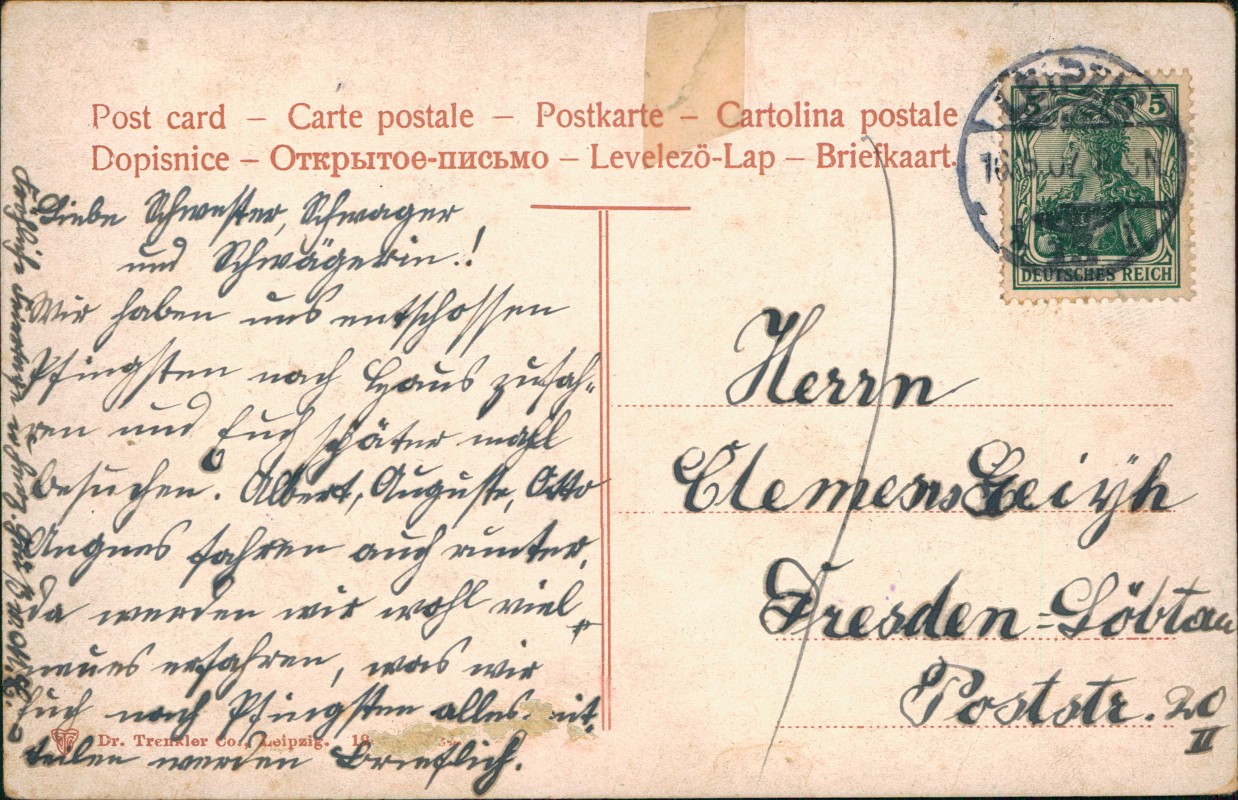 Post card – Carte postale – Postkarte – Cartolina postale
Dopisnice – Открытое-письмо – Levelező-Lap – Briefkaart.
5 5
DEUTSCHES REICH
Liebe Schwester, Schwager
und Schwägerin!
Wir haben uns entschossen
Pfingsten nach Haus zufah-
ren und Euch später mahl
besuchen. Albert, Auguste, Otto
Angnes fahren auch runter,
da werden wir wohl viel
neues erfahren, was wir
Euch nach Pfingsten alles mit
teilen werden Brieflich.
Herrn
Clemens
Dresden=Löbtau
Poststr. 20
II
Dr. Trenkler Co., Leipzig. 18